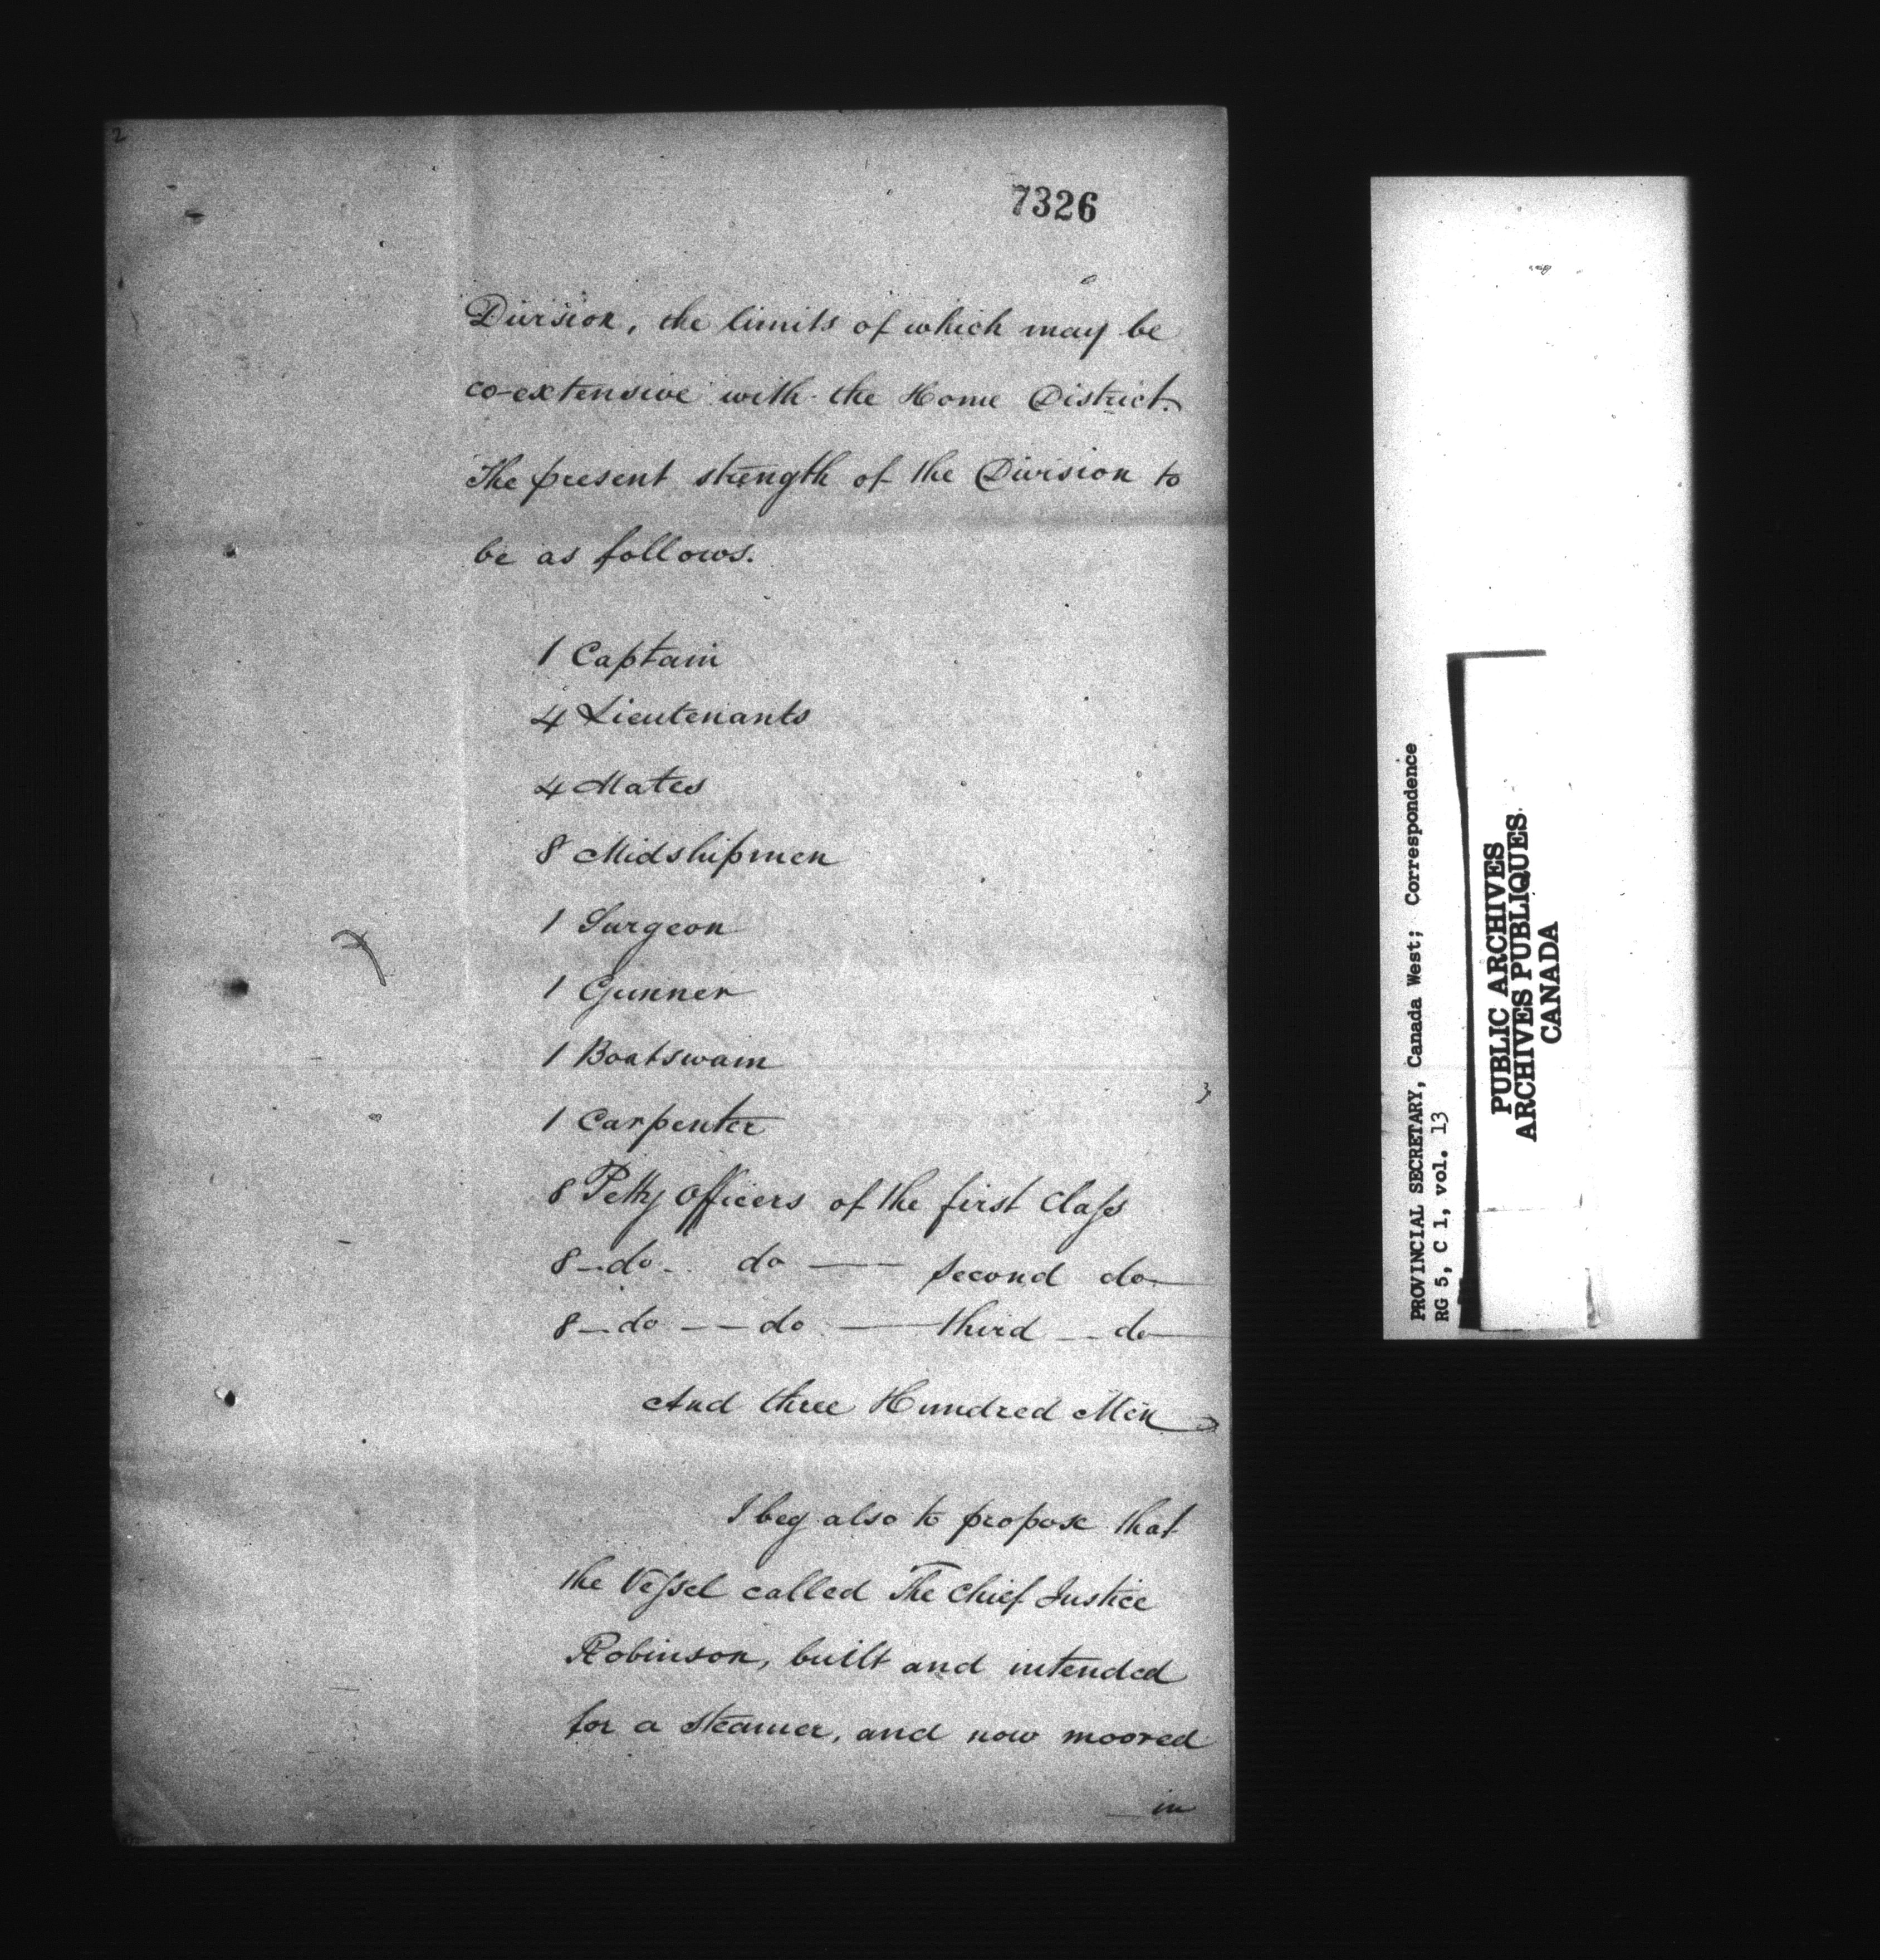 2
7326
Division, the limits of which may be
co-extensive with the Home District.
The present strength of the Division to
be as follows.
1 Captain
4 Lieutenants
4 Mates
8 Midshipmen
1 Surgeon
1 Gunner
1 Boatswain
1 Carpenter
8 Petty Officers of the first Class
8 - do - do — second do —
8 - do - - do — third - do —
And three Hundred Men
I beg also to propose that
the Vessel called The Chief Justice
Robinson, built and intended
for a steamer, and now moored
in
PROVINCIAL SECRETARY, Canada West; Correspondence
RG 5, C 1, vol. 13
PUBLIC ARCHIVES
ARCHIVES PUBLIQUES
CANADA